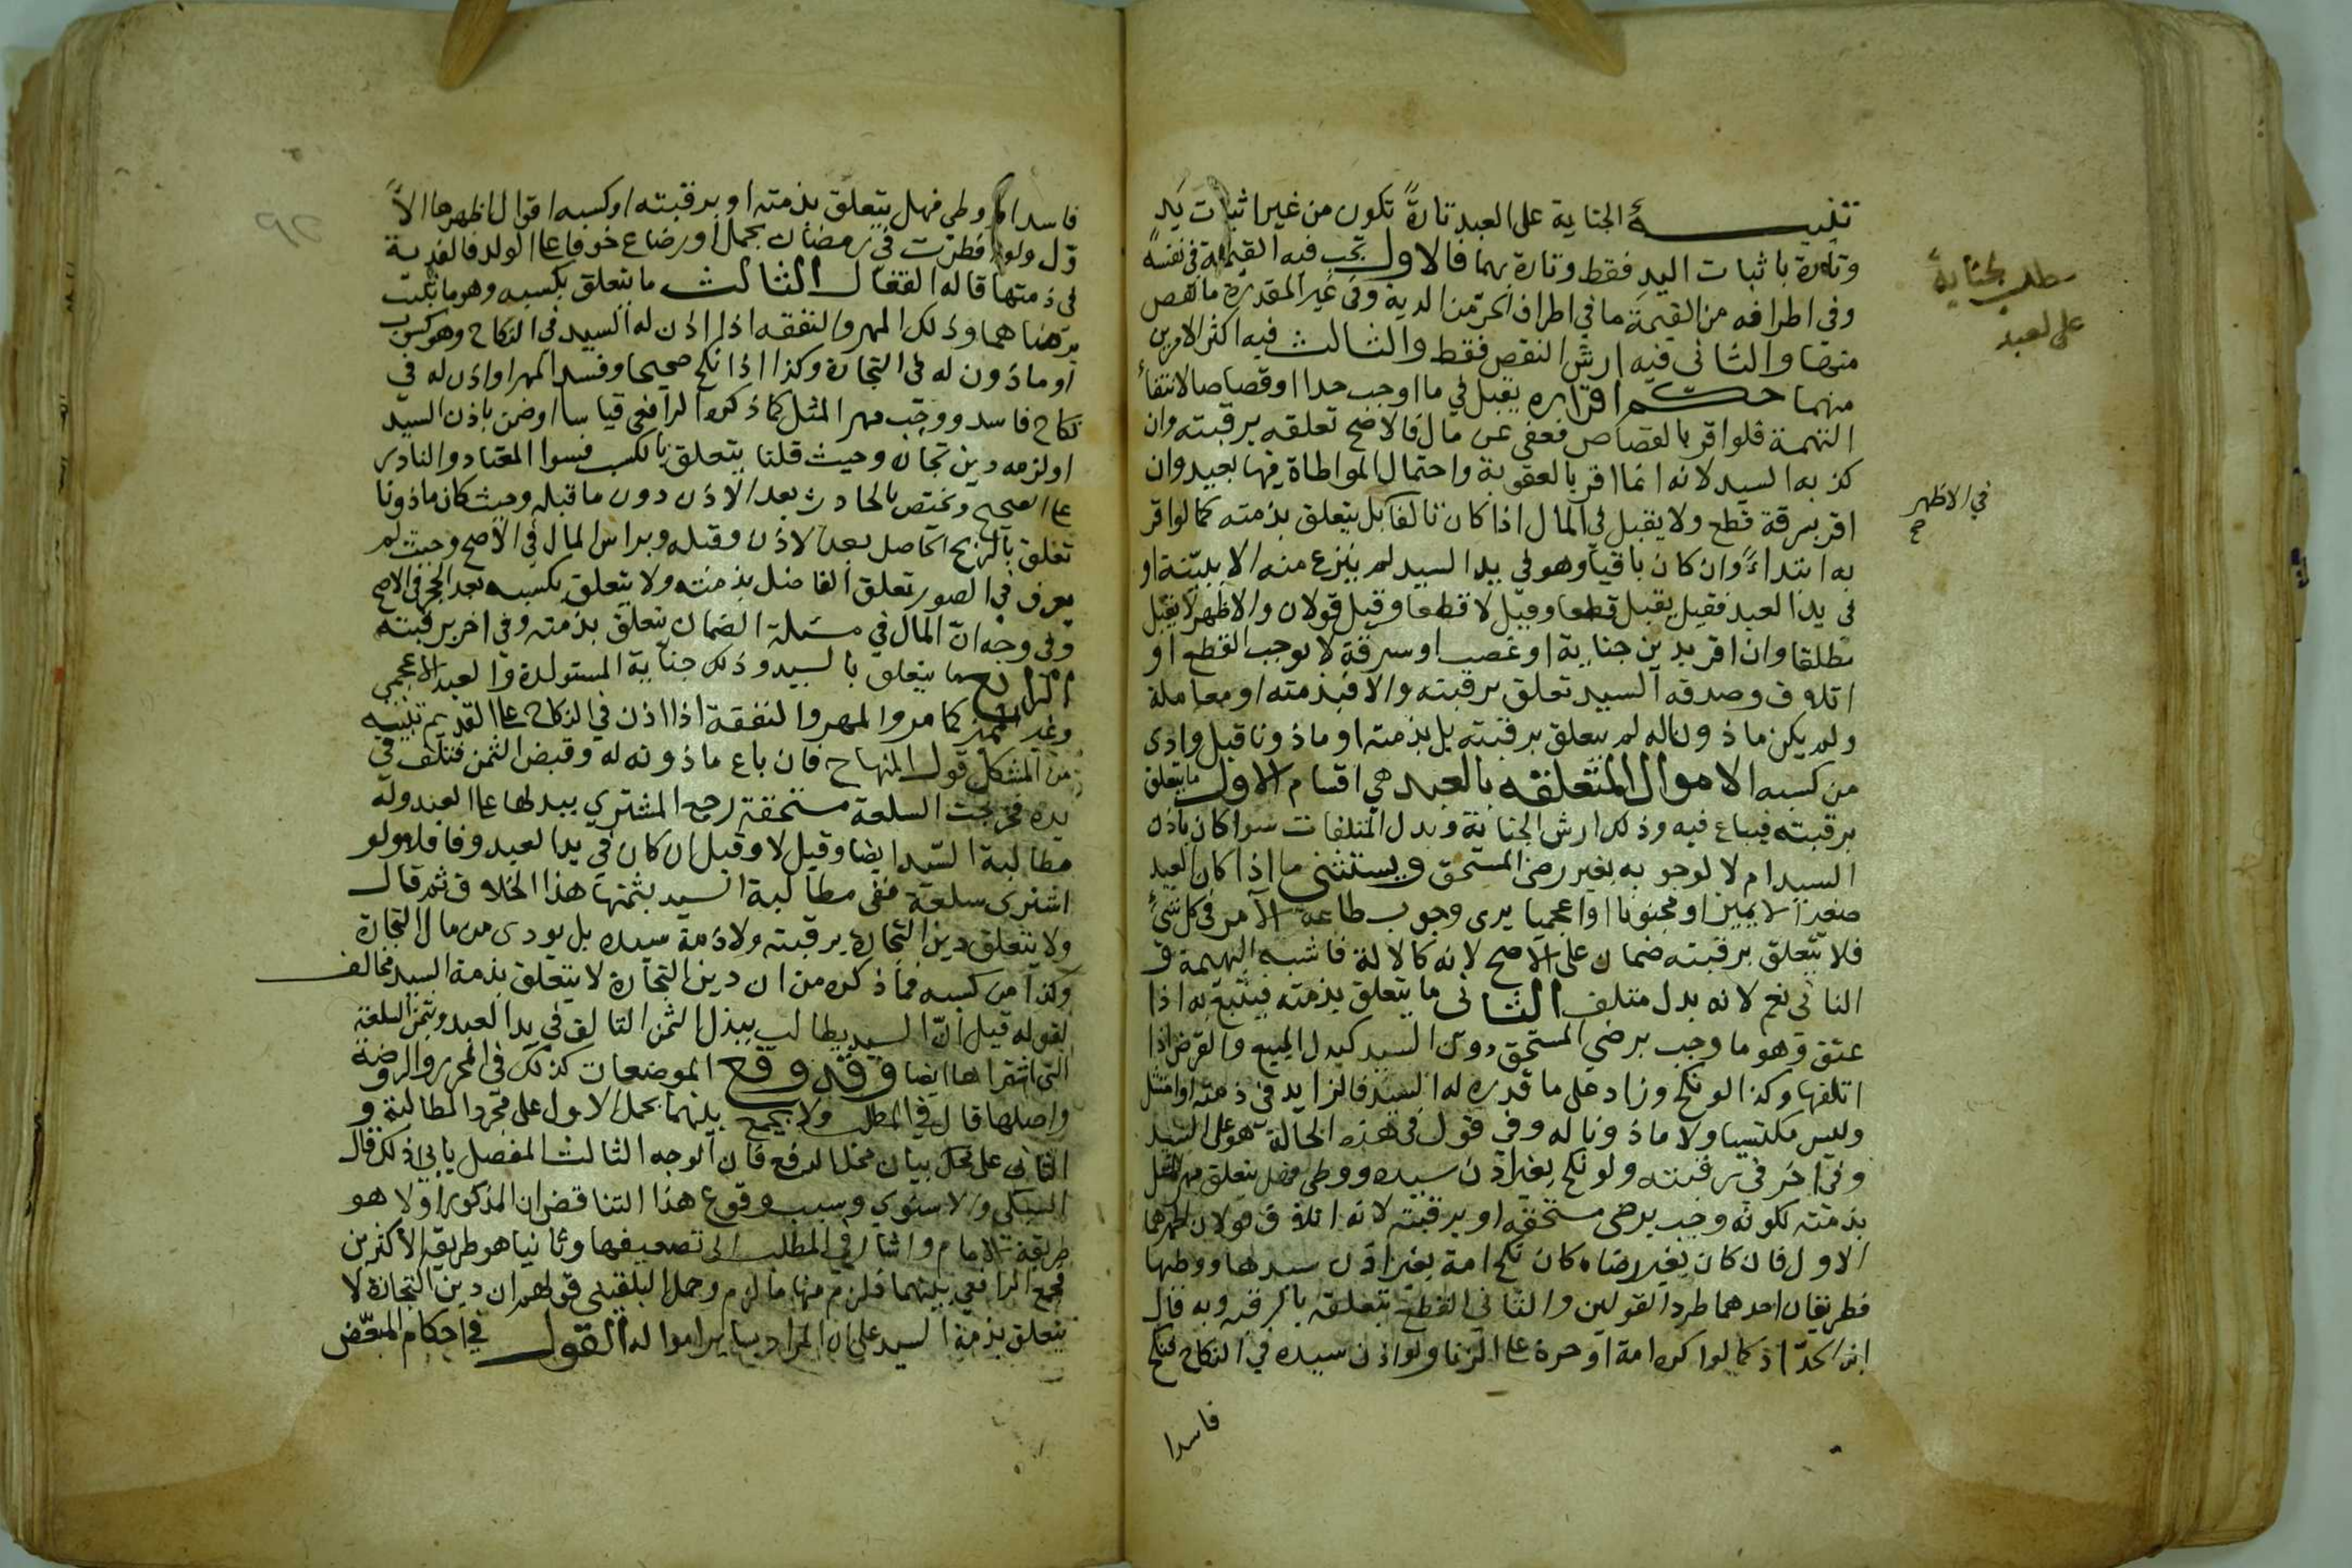 تنبيه الجناية على العبد تارة تكون من غير اثبات يد
وتارة باثبات اليد فقط وتارة بهما فالاول تجب فيه القيمة في نفسه
وفي اطرافه من القيمة ما في اطراف الحر من الدية وفي غير المقدرة ما نقص
منها والثاني فيه ارش النقص فقط والثالث فيه اكثر الامرين
منهما حكم اقراره يقبل في ما اوجب حدا او قصاصا لانتفاء
التهمة فلو اقر بالقصاص فعفى عن مال فالاصح تعلقه برقبته وان
كذبه السيد لانه انما اقر بالعقوبة واحتمال المواطاة فيها بعيد وان
اقر بسرقة قطع ولا يقبل في المال اذا كان تالفا بل يتعلق بذمته كما لو اقر
به ابتداءً وان كان باقيا وهو في يد السيد لم ينزع منه الا ببينة او
في يد العبد فقيل يقبل قطعا وقيل لا قطعا وقيل قولان والاظهر لا يقبل
مطلقا وان اقر بدين جناية او غصب او سرقة لا يوجب القطع او
اتلاف وصدقه السيد تعلق برقبته والا فبذمته او معاملة
ولم يكن ماذونا له لم يتعلق برقبته بل بذمته او ماذونا قبل وادى
من كسبه الاموال المتعلقه بالعبد هي اقسام الاول ما يتعلق
برقبته فيباع فيه وذلك ارش الجناية وبدل المتلفات سوا كان باذن
السيد ام لا لوجوبه بغير رضى المستحق ويستثنى ما اذا كان العبد
صغيرا لا يميز او مجنونا او اعجميا يرى وجوب طاعة الآمر في كل شيء
فلا يتعلق برقبته ضمان على الاصح لانه كالالة فاشبه البهيمة و
الثاني نعم لانه بدل متلف الثاني ما يتعلق بذمته فيتبع به اذا
عتق وهو ما وجب برضى المستحق دون السيد كبدل المبيع والقرض اذا
اتلفها وكذا لو نكح وزاد على ما قدره له السيد فالزايد في ذمته او امتثل
وليس مكتسبا ولا ماذونا له وفي قول في هذه الحالة هو على السيد
وفي اخر في رقبته ولو نكح بغير اذن سيده ووطي فهل يتعلق مهر المثل
بذمته لكونه وجب برضى مستحقه او برقبته لانه اتلاف قولان اظهرهما
الاول فان كان بغير رضاه كان نكح امة بغير اذن سيدها ووطيها
فطريقان احدهما طرد القولين والثاني القطع بتعلقه بالرقبة وبه قال
ابن الحداد كما لو اكره امة او حرة على الزنا ولو اذن سيده في النكاح فنكح
فاسدا
مطلب الجناية
على العبد
في الاظهر
صح
فاسدا ووطي فهل يتعلق بذمته او برقبته او كسبه اقوال اظهرها الا
ول ولو افطرت في رمضان بحمل او رضاع خوفا على الولد فالفدية
في ذمتها قاله القفال الثالث ما يتعلق بكسبه وهو ما ثبت
برضاهما وذلك المهر والنفقه اذا اذن له السيد في النكاح وهو كسوب
او ماذون له في التجارة وكذا اذا نكح صحيحا وفسد المهر او اذن له في
نكاح فاسد ووجب مهر المثل كما ذكره الرافعي قياسا او ضمن باذن السيد
او لزمه دين تجارة وحيث قلنا يتعلق بالكسب فسوا المعتاد والنادر
على الصحيح وتختص بالحادث بعد الاذن دون ما قبله وحيث كان ماذونا
تعلق بالربح الحاصل بعد الاذن وقبله وبراس المال في الاصح وحيث لم
يعرف في الصور تعلق الفاضل بذمته ولا يتعلق بكسبه بعد الحجر في الاصح
وفي وجه ان المال في مسئلة الضمان يتعلق بذمته وفي اخر برقبته
الرابع ما يتعلق بالسيد وذلك جناية المستولدة والعبد الاعجمي
وغير المميز كما مر والمهر والنفقة اذا اذن في النكاح على القديم تنبيه
من المشكل قول المنهاج فان باع ماذونه له وقبض الثمن فتلف في
يده فخرجت السلعة مستحقة رجع المشتري ببدلها على العبد وله
مطالبة السيد ايضا وقيل لا وقيل ان كان في يد العبد وفا فلا ولو
اشترى سلعة ففي مطالبة السيد بثمنها هذا الخلاف ثم قال
ولا يتعلق دين التجارة برقبته ولا ذمة سيده بل يودى من مال التجارة
وكذا من كسبه فما ذكره من ان دين التجارة لا يتعلق بذمة السيد مخالف
لقوله قبل ان السيد يطالب ببدل الثمن التالف في يد العبد وبثمن السلعة
التي اشتراها ايضا وقد وقع الموضعان كذلك في المحرر والروضة
واصلها قال في المطلب ولا يجمع بينهما بحمل الاول على مجرد المطالبة و
الثاني على محل بيان محل الدفع فان الوجه الثالث المفصل يابى ذلك قال
السبكي والاسنوي وسبب وقوع هذا التناقض ان المذكور اولا هو
طريقة الامام واشار في المطلب الى تضعيفها وثانيا هو طريقة الاكثرين
فجمع الرافعي بينهما فلزم منها ما لزم وحمل البلقيني قولهم ان دين التجارة لا
يتعلق بذمة السيد على ان المراد بساير امواله القول في احكام المبعض